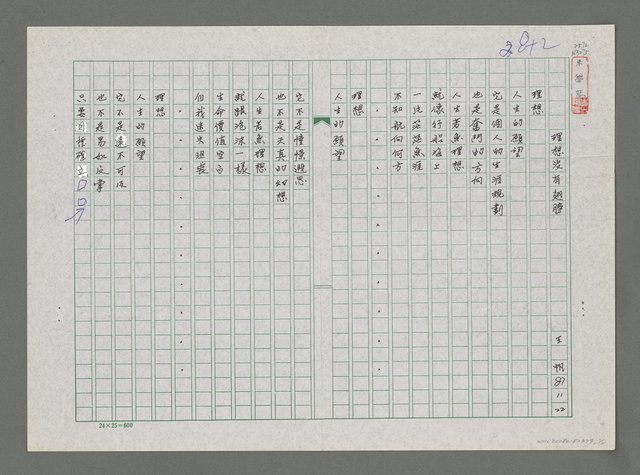 2842
理想沒有翅膀
王
87.11.22
理想
人生的願望
它是個人的生涯規劃
也是奮鬥的方向
人生若無理想
就像行船海上
一片茫茫無涯
不知航向何方
理想
人生的願望
它不是憧憬遐思
也不是天真的幻想
人生若無理想
就猶泡沫一樣
生命價值空白
但我迷失沮喪
理想
人生的願望
它不是遙不可及
也不是易如反掌
只要
24×25=600